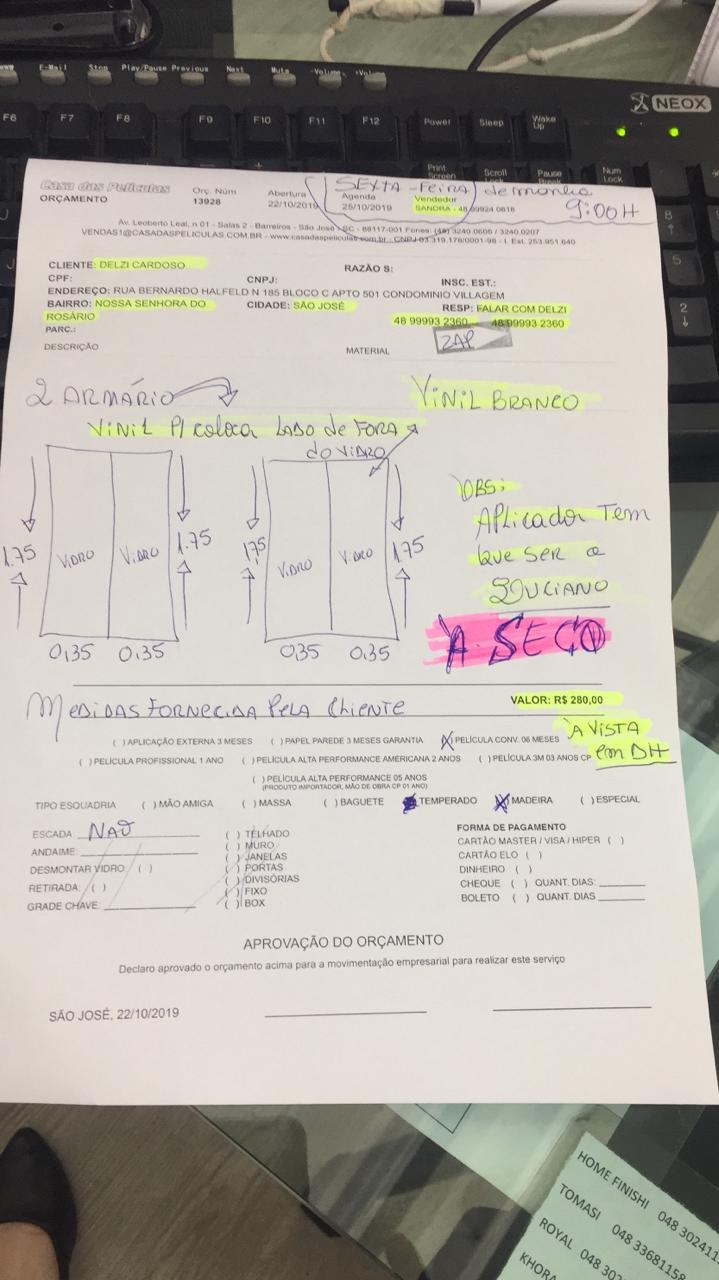 E-Mail Stop Play/Pause Previous Next Mute -Volume +Volume
NEOX
F6 F7 F8 F9 F10 F11 F12 Power Sleep Wake Up
Print Screen Scroll Lock Pause Num Lock
8
5
2
Casa das Películas
ORÇAMENTO
Orç. Núm
13928
Abertura
22/10/2019
Agenda
25/10/2019
Vendedor
SANDRA - 48 99924 0618
SEXTA-FEIRA de manha
9:00H
Av. Leoberto Leal, n 01 - Salas 2 - Barreiros - São José - SC - 88117-001 Fones: (48) 3240.0606 / 3240.0207
VENDAS1@CASADASPELICULAS.COM.BR - www.casadaspeliculas.com.br - CNPJ 03.319.178/0001-98 - I. Est. 253.951.640
CLIENTE: DELZI CARDOSO RAZÃO S:
CPF: CNPJ: INSC. EST.:
ENDEREÇO: RUA BERNARDO HALFELD N 185 BLOCO C APTO 501 CONDOMINIO VILLAGEM
BAIRRO: NOSSA SENHORA DO ROSÁRIO CIDADE: SÃO JOSÉ RESP: FALAR COM DELZI
48 99993 2360 48 99993 2360
PARC.:
ZAP
DESCRIÇÃO MATERIAL
2 ARMÁRIO
VINIL BRANCO
VINIL P/ coloca LADO de FORA
do VIDRO
OBS:
APLICADOR TEM
QUE SER O
LUCIANO
A SECO
1.75 VIDRO VIDRO 1.75 1,75 VIDRO VIDRO 1.75
0,35 0,35 0,35 0,35
MEDIDAS FORNECIDA PELA CLIENTE
VALOR: R$ 280,00
À VISTA
em DH
( ) APLICAÇÃO EXTERNA 3 MESES ( ) PAPEL PAREDE 3 MESES GARANTIA (X) PELÍCULA CONV. 06 MESES
( ) PELÍCULA PROFISSIONAL 1 ANO ( ) PELÍCULA ALTA PERFORMANCE AMERICANA 2 ANOS ( ) PELÍCULA 3M 03 ANOS CP
( ) PELÍCULA ALTA PERFORMANCE 05 ANOS
(PRODUTO IMPORTADOR, MÃO DE OBRA CP 01 ANO)
TIPO ESQUADRIA ( ) MÃO AMIGA ( ) MASSA ( ) BAGUETE TEMPERADO (X) MADEIRA ( ) ESPECIAL
ESCADA NAO
ANDAIME:
DESMONTAR VIDRO: ( )
RETIRADA: ( )
GRADE CHAVE:
( ) TELHADO
( ) MURO
( ) JANELAS
( ) PORTAS
( ) DIVISÓRIAS
( ) FIXO
( ) BOX
FORMA DE PAGAMENTO
CARTÃO MASTER / VISA / HIPER ( )
CARTÃO ELO ( )
DINHEIRO ( )
CHEQUE ( ) QUANT. DIAS:
BOLETO ( ) QUANT. DIAS
APROVAÇÃO DO ORÇAMENTO
Declaro aprovado o orçamento acima para a movimentação empresarial para realizar este serviço
SÃO JOSÉ, 22/10/2019
HOME FINISHI 048 302411
TOMASI 048 33681158
ROYAL 048 30
KHORA